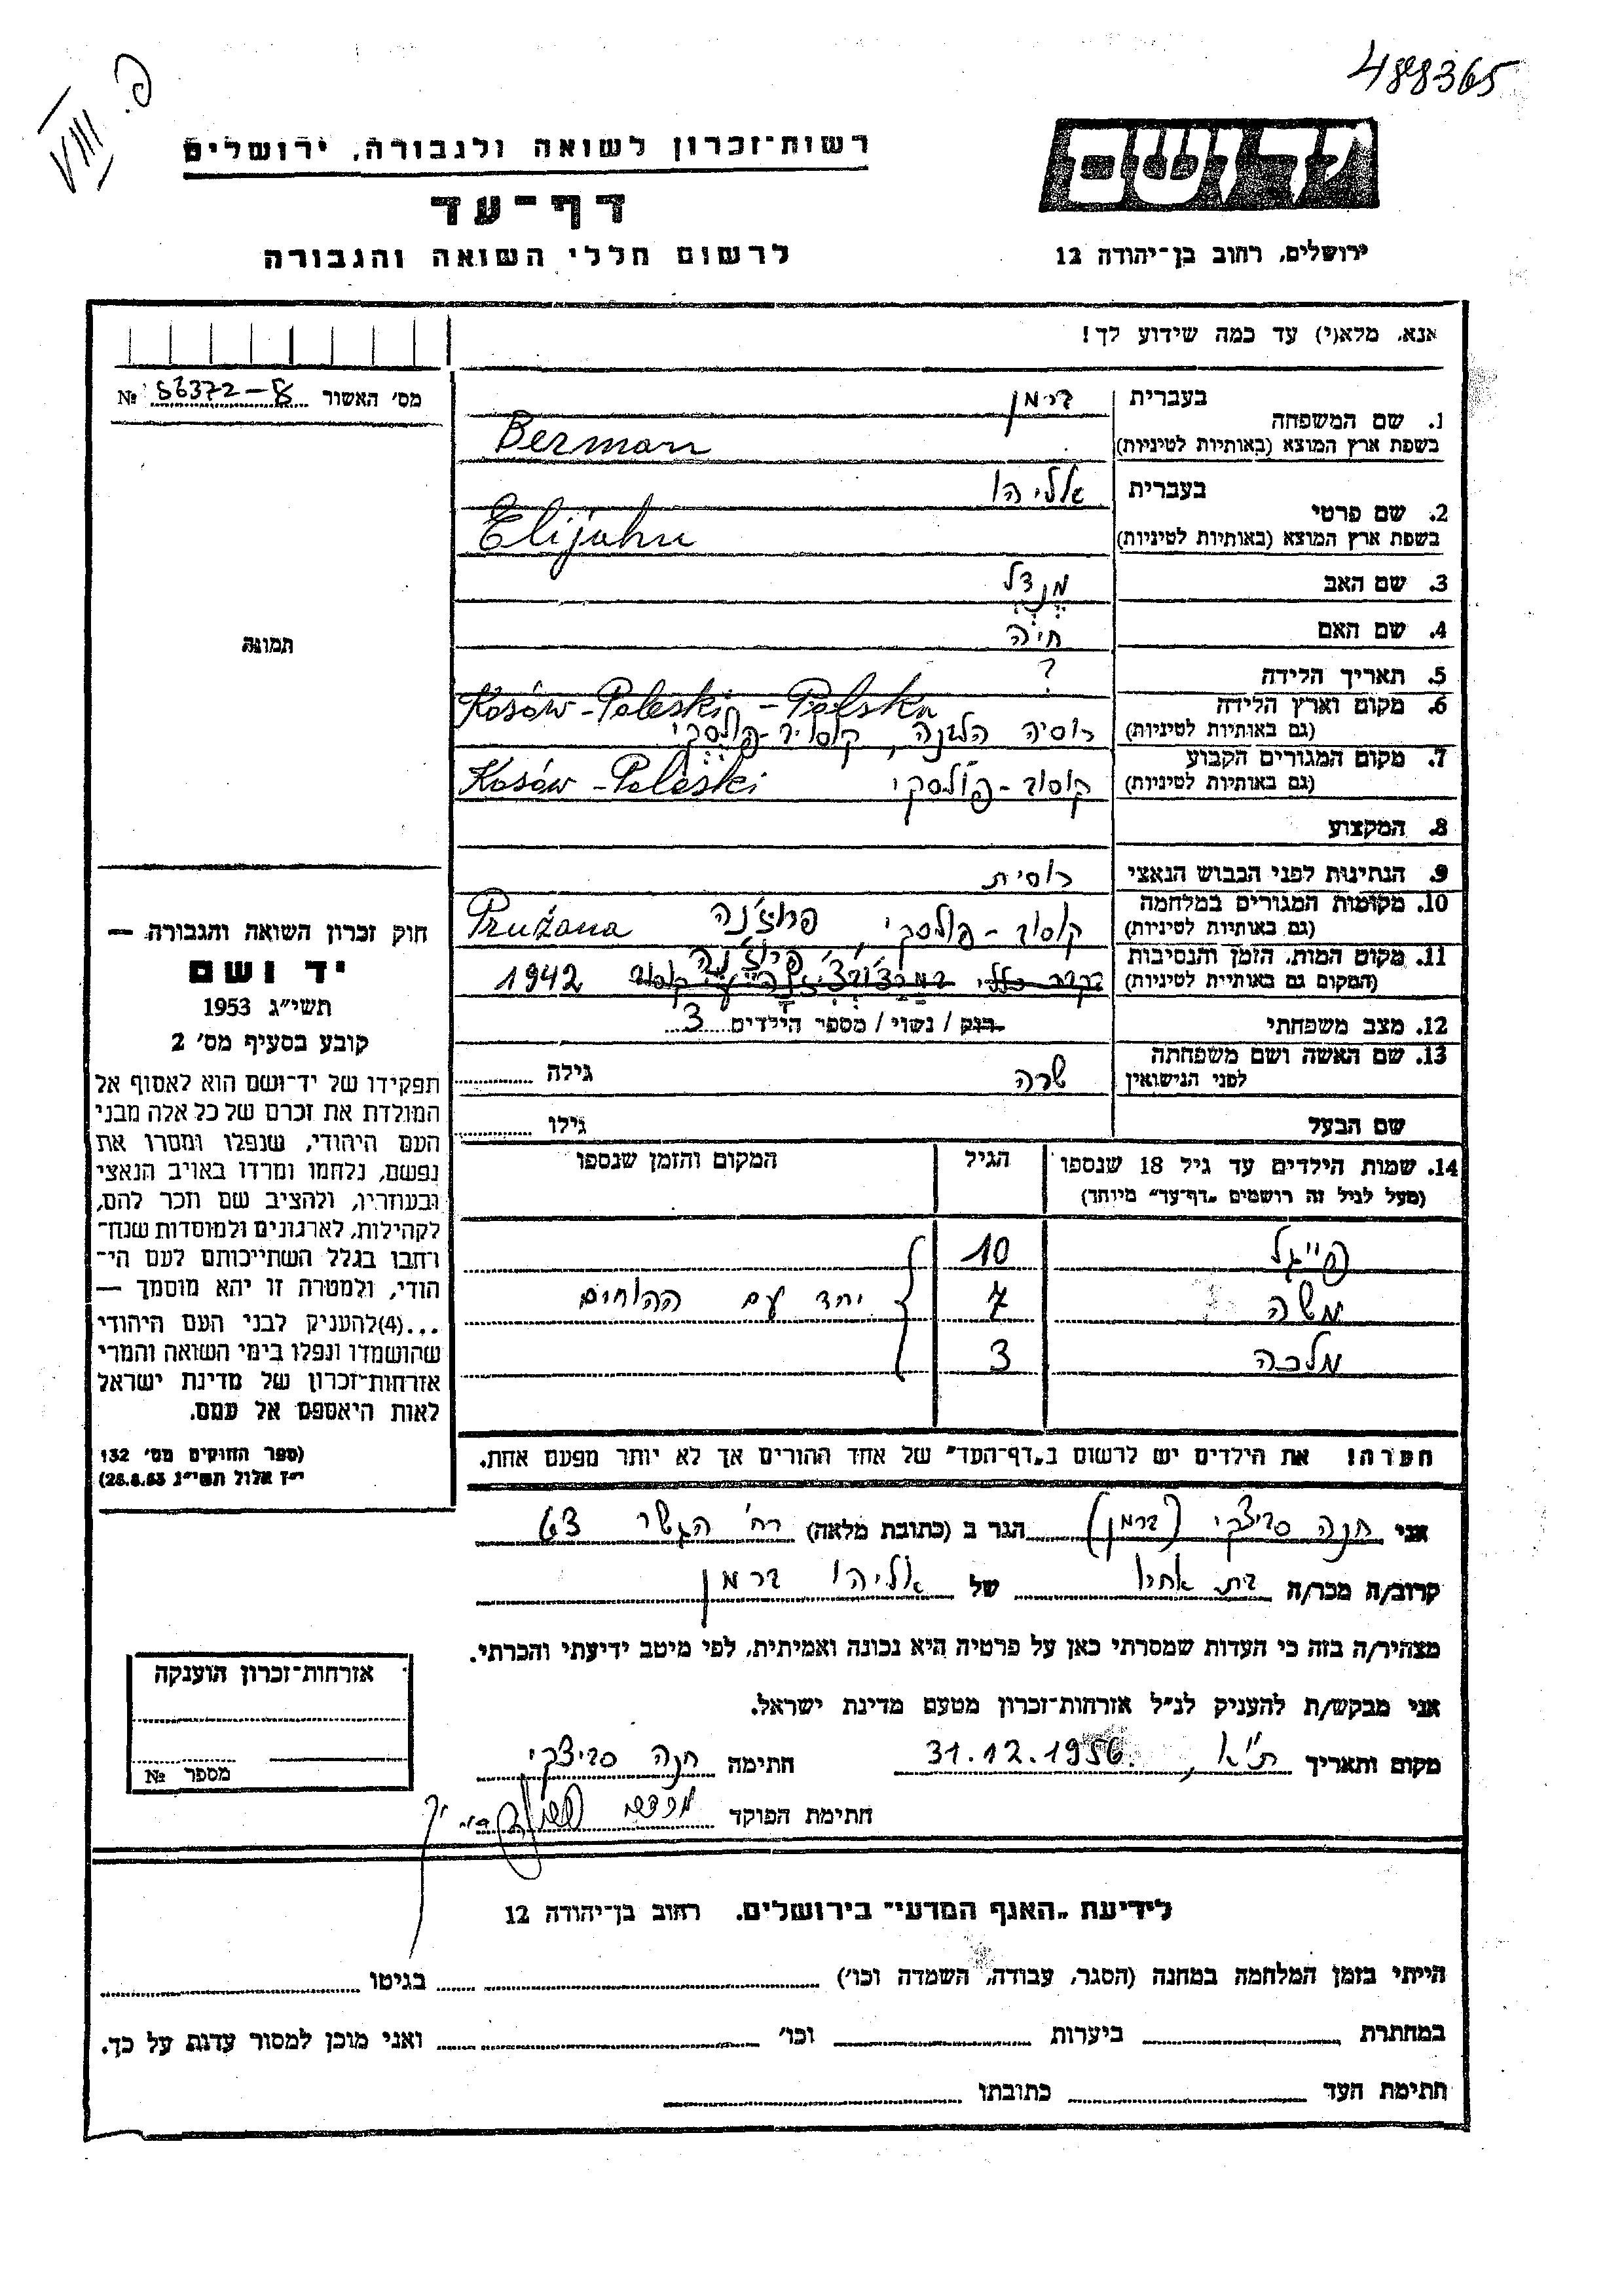 488365
פ. VIII
יד ושם
ירושלים, רחוב בן־יהודה 12
רשות־זכרון לשואה ולגבורה, ירושלים
דף־עד
לרשום חללי השואה והגבורה
אנא, מלא(י) עד כמה שידוע לך!
מס' האשור 86372-8 №
בעברית ברמן
1. שם המשפחה
בשפת ארץ המוצא (באותיות לטיניות) Berman
בעברית אליהו
2. שם פרטי
בשפת ארץ המוצא (באותיות לטיניות) Elijahu
3. שם האב מנדל
4. שם האם חיה
5. תאריך הלידה ?
6. מקום וארץ הלידה Kosów-Poleski-Polska
(גם באותיות לטיניות) רוסיה הלבנה, קוסוב-פולסקי
7. מקום המגורים הקבוע
(גם באותיות לטיניות) קוסוב-פולסקי Kosów-Poleski
8. המקצוע
9. הנתינות לפני הכבוש הנאצי רוסית
10. מקומות המגורים במלחמה
(גם באותיות לטיניות) קוסוב-פולסקי, פרוז'נה Prużana
11. מקום המות, הזמן והנסיבות פרוז'נה
(המקום גם באותיות לטיניות) בקבר כללי קוסוב 1942
12. מצב משפחתי רווק / נשוי / מספר הילדים 3
13. שם האשה ושם משפחתה
לפני הנישואין שרה גילה
שם הבעל גילו
14. שמות הילדים עד גיל 18 שנספו הגיל המקום והזמן שנספו
(מעל לגיל זה רושמים „דף־עד" מיוחד)
פייגל 10
משה 7 יחד עם ההורים
מלכה 3
הערה! את הילדים יש לרשום ב„דף־העד" של אחד ההורים אך לא יותר מפעם אחת.
תמונה
חוק זכרון השואה והגבורה —
יד ושם
תשי"ג 1953
קובע בסעיף מס' 2
תפקידו של יד־ושם הוא לאסוף אל
המולדת את זכרם של כל אלה מבני
העם היהודי, שנפלו ומסרו את
נפשם, נלחמו ומרדו באויב הנאצי
ובעוזריו, ולהציב שם וזכר להם,
לקהילות, לארגונים ולמוסדות שנח־
רבו בגלל השתייכותם לעם הי־
הודי, ולמטרה זו יהא מוסמך —
...(4)להעניק לבני העם היהודי
שהושמדו ונפלו בימי השואה והמרי
אזרחות־זכרון של מדינת ישראל
לאות היאספם אל עמם.
(ספר החוקים מס' 132
י"ז אלול תשי"ג 28.8.53)
אני חנה סביצקי (ברמן) הגר ב (כתובת מלאה) רח' הגשר 63
קרוב/ה מכר/ה בת אחיו של אליהו ברמן
מצהיר/ה בזה כי העדות שמסרתי כאן על פרטיה היא נכונה ואמיתית, לפי מיטב ידיעתי והכרתי.
אני מבקש/ת להעניק לנ"ל אזרחות־זכרון מטעם מדינת ישראל.
מקום ותאריך ת"א, 31.12.1956 חתימה חנה סביצקי
חתימת הפוקד
אזרחות־זכרון הוענקה
מספר №
לידיעת „האגף המדעי" בירושלים, רחוב בן־יהודה 12
הייתי בזמן המלחמה במחנה (הסגר, עבודה, השמדה וכו') בגיטו
במחתרת ביערות וכו' ואני מוכן למסור עדות על כך.
חתימת העד כתובתו